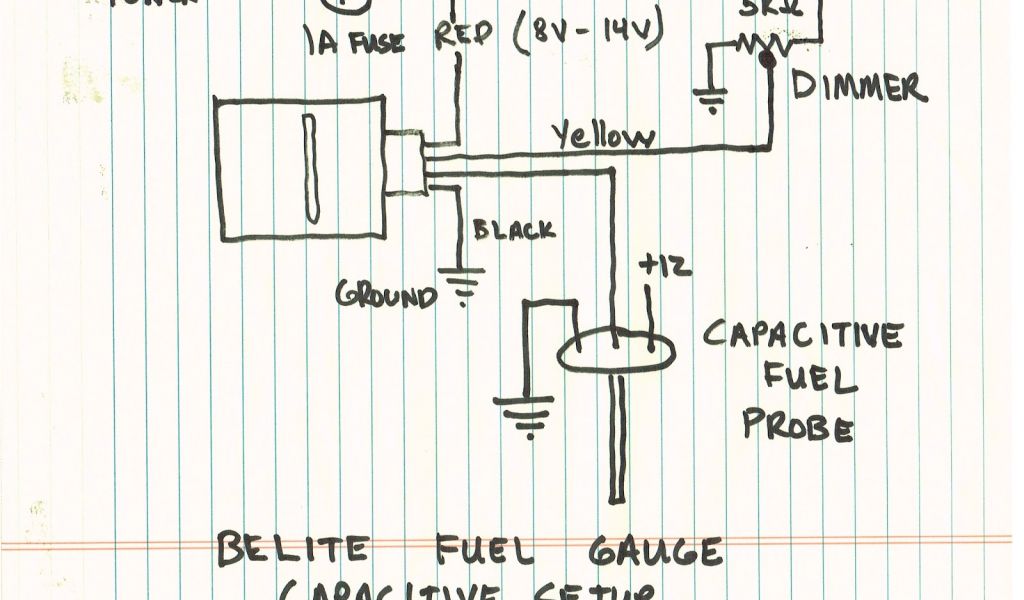 POWER
1A FUSE RED (8V - 14V)
5KΩ
DIMMER
Yellow
BLACK
+12
GROUND
CAPACITIVE
FUEL
PROBE
BELITE FUEL GAUGE
CAPACITIVE SETUP